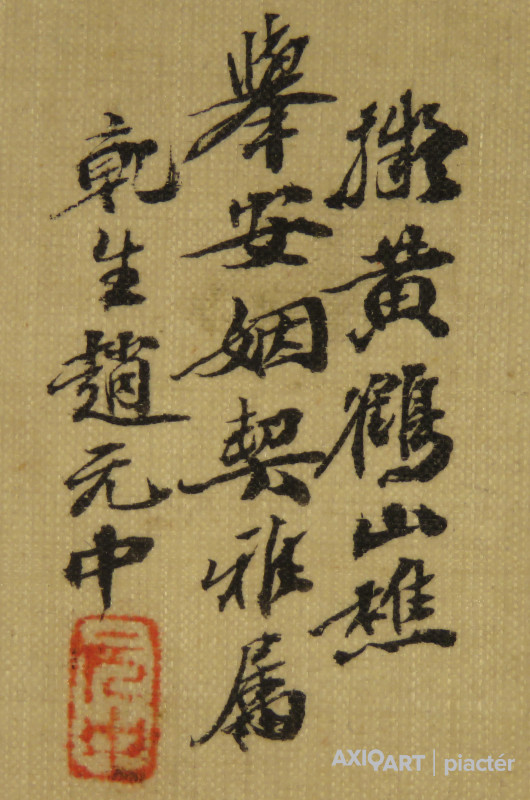 擬黃鶴山樵
舉安姻契雅屬
乾生趙元中
元中
AXIOART | piactér